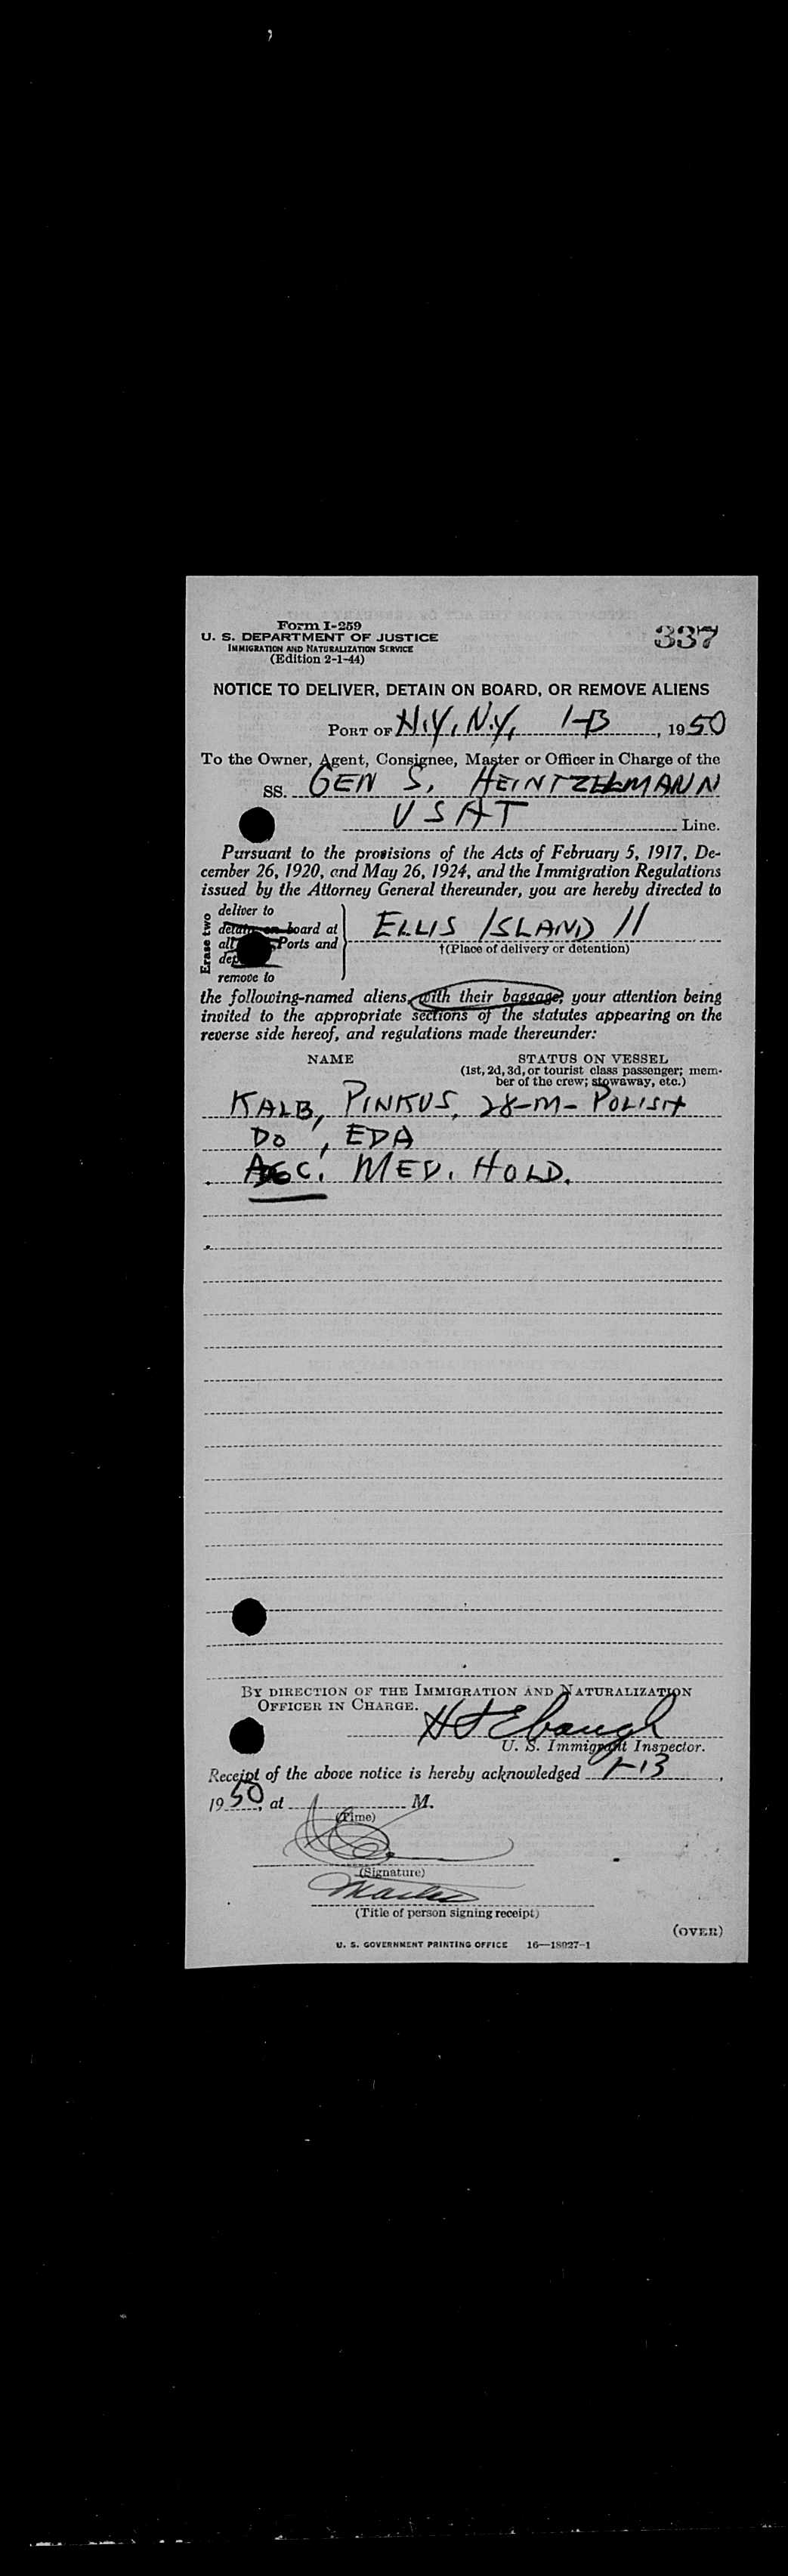 Form I-259
337
U. S. DEPARTMENT OF JUSTICE
IMMIGRATION AND NATURALIZATION SERVICE
(Edition 2-1-44)
NOTICE TO DELIVER, DETAIN ON BOARD, OR REMOVE ALIENS
PORT OF N.Y., N.Y., 1-13, 1950
To the Owner, Agent, Consignee, Master or Officer in Charge of the
SS. GEN S. HEINTZELMANN
USAT Line.
Pursuant to the provisions of the Acts of February 5, 1917, De-
cember 26, 1920, and May 26, 1924, and the Immigration Regulations
issued by the Attorney General thereunder, you are hereby directed to
Erase two
deliver to
detain on board at ELLIS ISLAND //
all Ports and †(Place of delivery or detention)
remove to
the following-named aliens, with their baggage; your attention being
invited to the appropriate sections of the statutes appearing on the
reverse side hereof, and regulations made thereunder:
NAME STATUS ON VESSEL
(1st, 2d, 3d, or tourist class passenger; mem-
ber of the crew; stowaway, etc.)
KALB, PINKUS, 28-M- POLISH
DO, EDA
ACC. MED. HOLD.
BY DIRECTION OF THE IMMIGRATION AND NATURALIZATION
OFFICER IN CHARGE.
H J Ebaugh
U. S. Immigrant Inspector.
Receipt of the above notice is hereby acknowledged 1-13,
1950, at M.
(Time)
(Signature)
Master
(Title of person signing receipt)
(OVER)
U. S. GOVERNMENT PRINTING OFFICE 16—18027-1